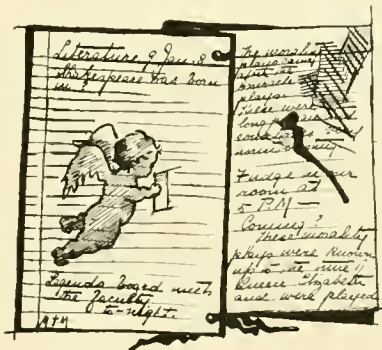 Literature 9 Jan. 8
Shakespeare was born
in ?
Legenda board meets
the faculty
to-night.
The morality
plays came
after the
miracle
plays.
These were
long
Fudge in our
room at
5 P.M —
Coming?
These morality
plays were known
up to the time of
Queen Elizabeth
and were played